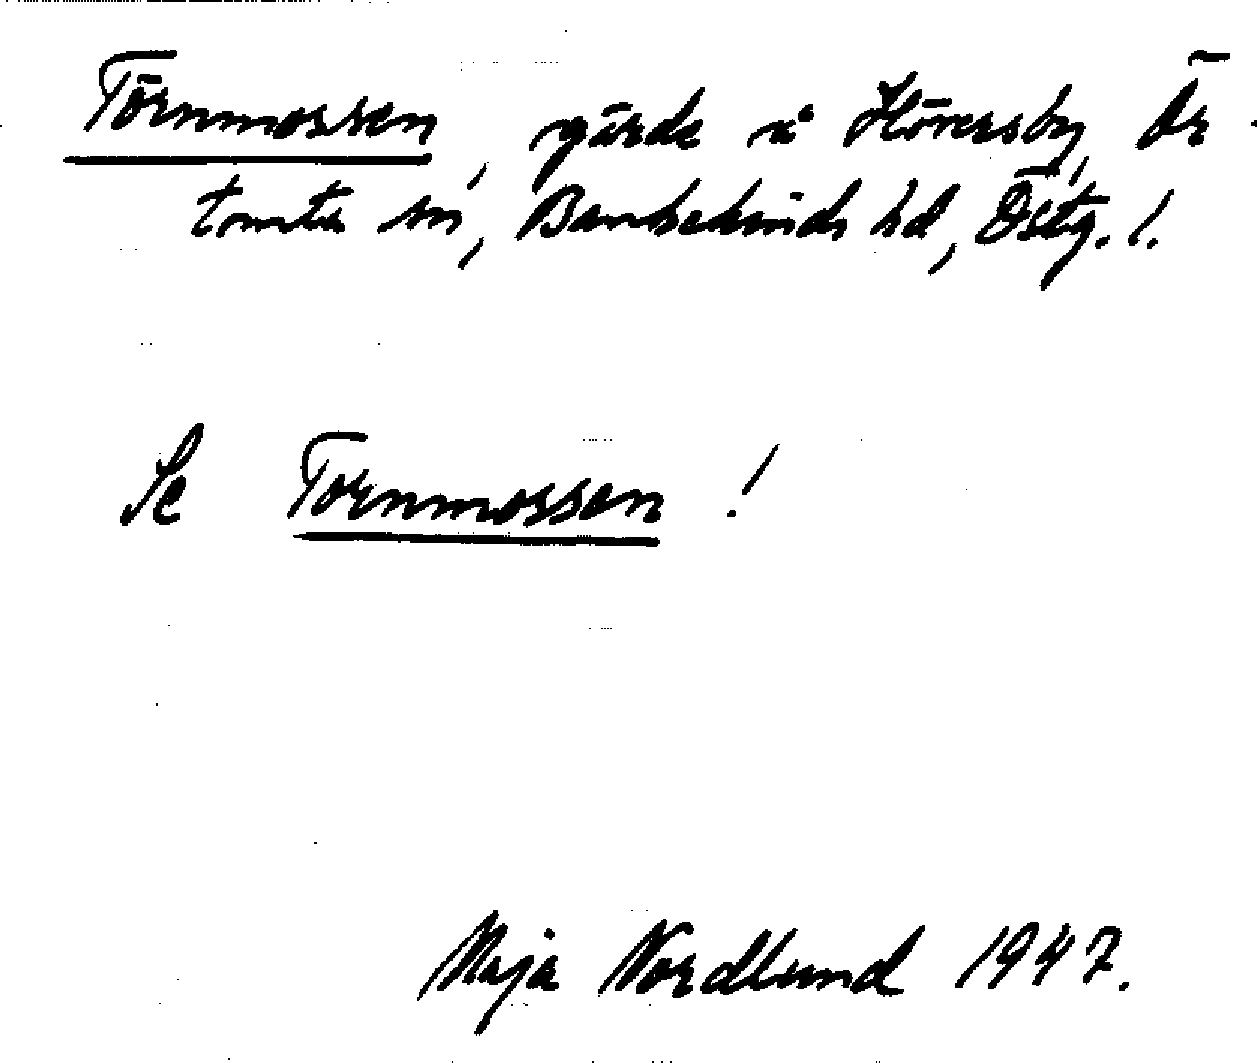 Törnmossen, gärde å Höversby, Ör-
tomta sn, Bankekinds hd, Östg. l.
Se Tornmossen!
Maja Nordlund 1947.